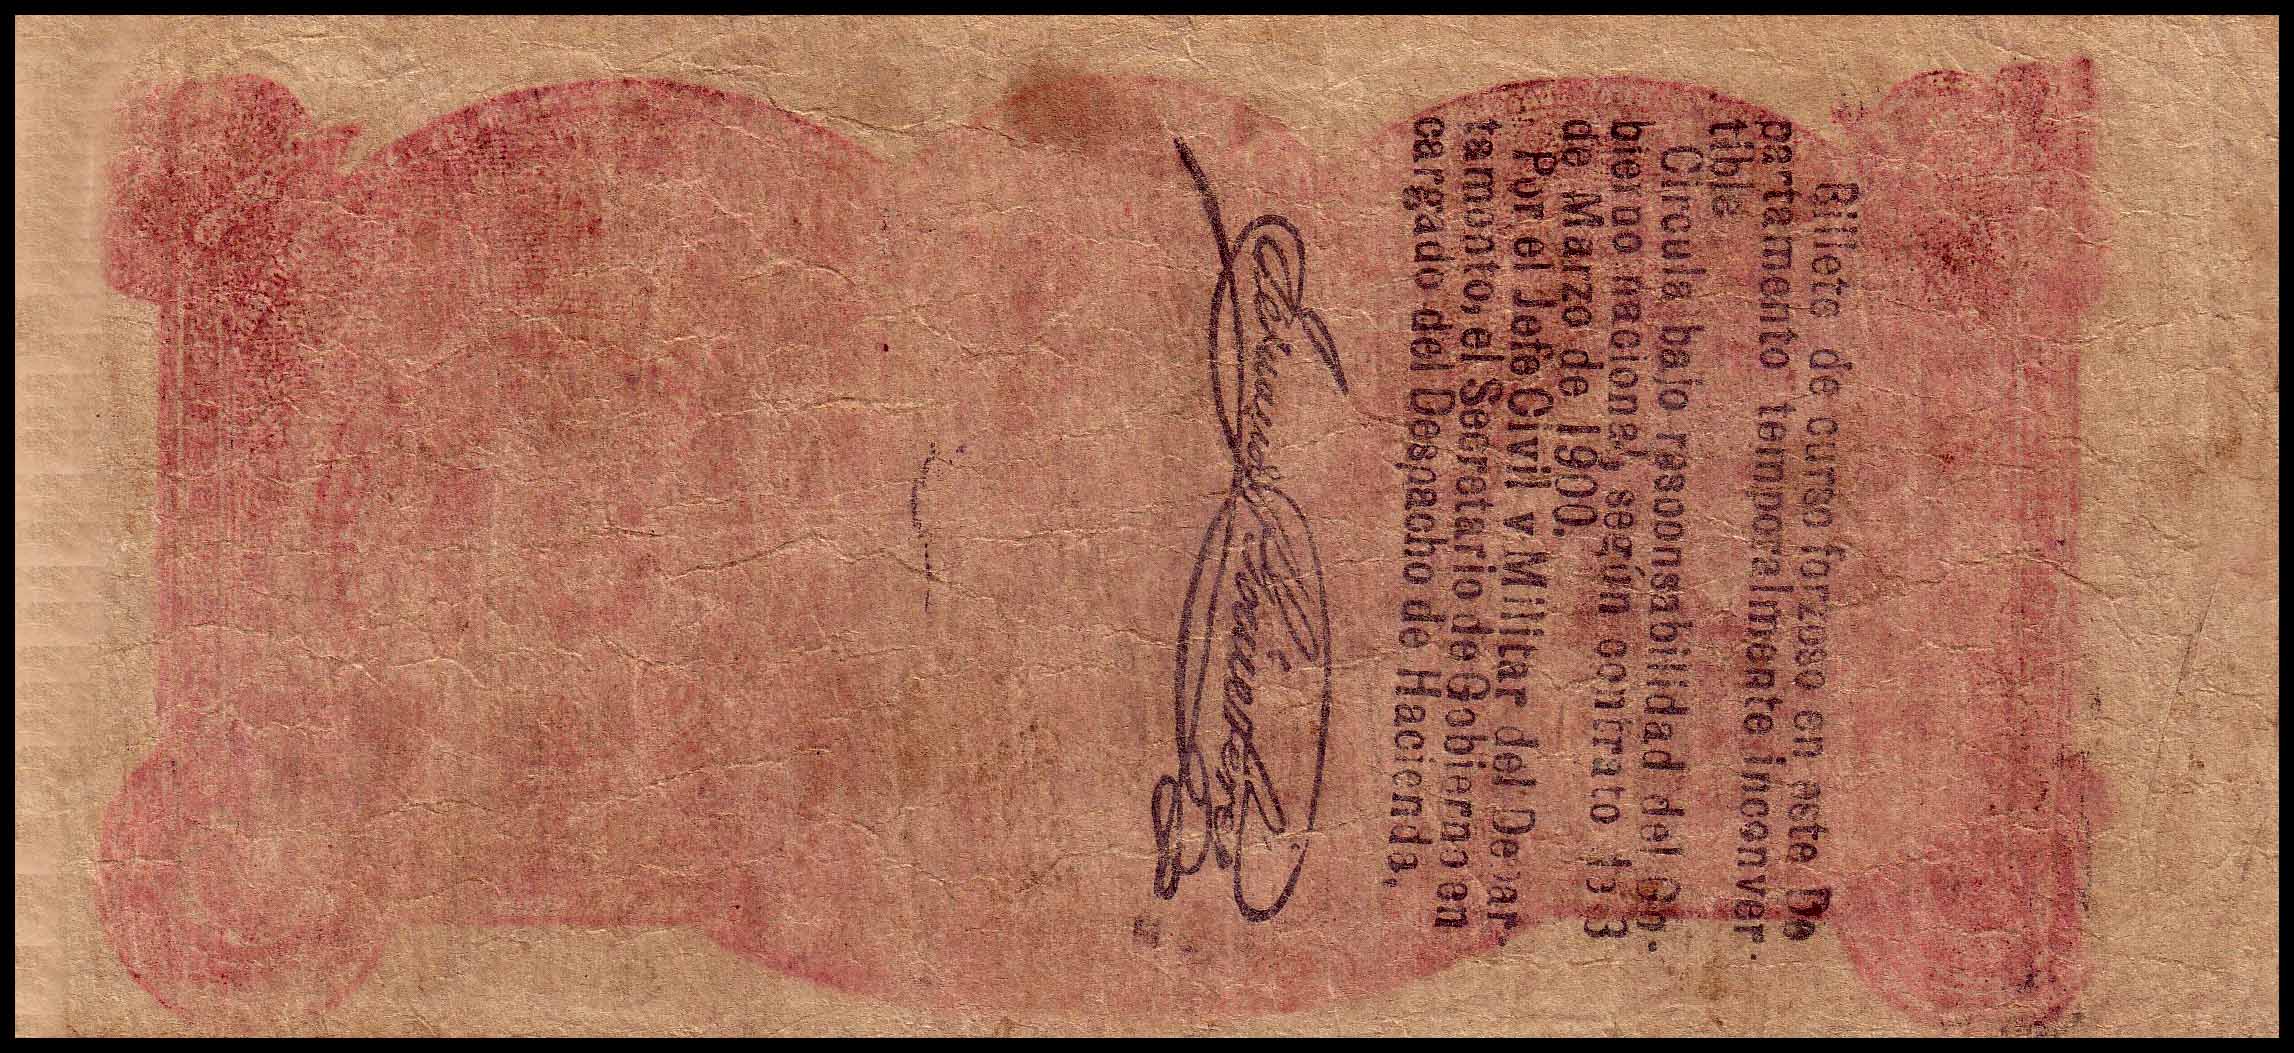 Billete de curso forzoso en este De
partamento temporalmente inconver-
tible
Circula bajo responsabilidad del Go-
bierno nacional, según contrato 1º 3
de Marzo de 1900.
Por el Jefe Civil y Militar del Depar-
tamento, el Secretario de Gobierno en
cargado del Despacho de Hacienda,